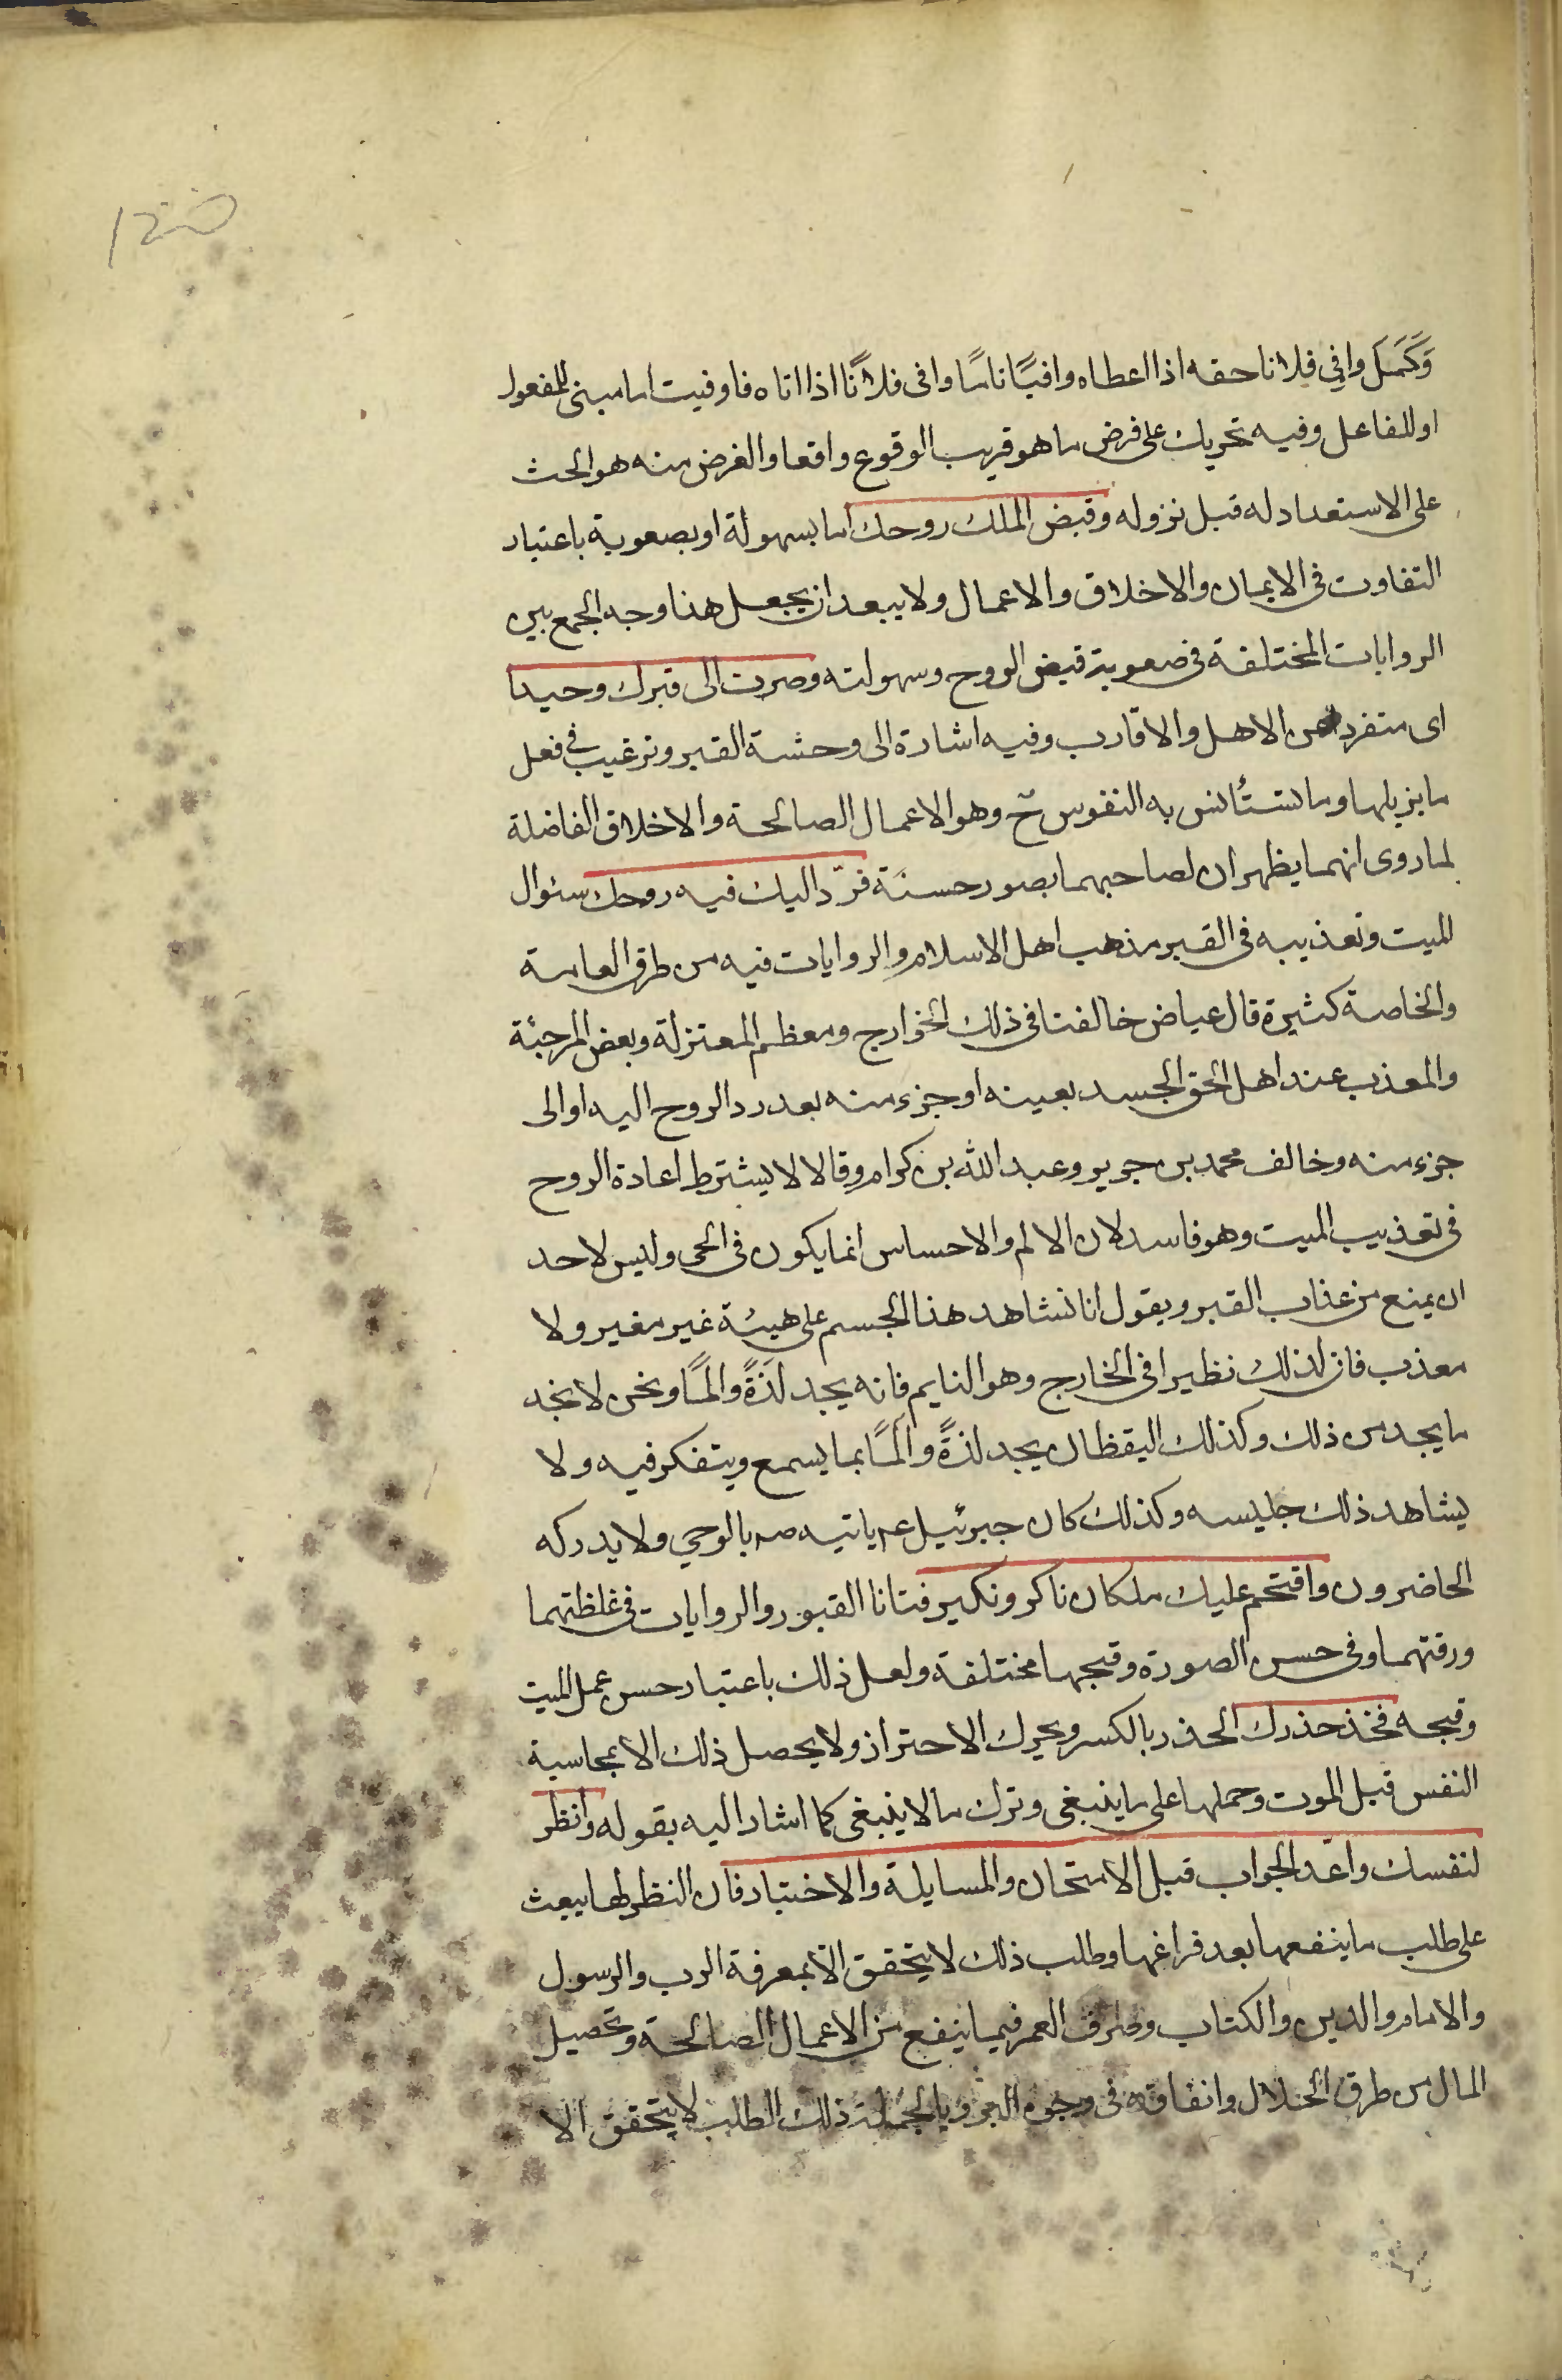 ١٤٥
وَكَمَلَ وافي فلانا حقه اذا اعطاه وافيًا تامًا وافى فلانًا اذا اتاه فاوفيت اما مبنى للمفعول
او للفاعل وفيه تحريك على فرض ما هو قريب الوقوع واقعا والغرض منه هو الحث
على الاستعداد له قبل نزوله وقبض الملك روحك اما بسهولة او بصعوبة باعتبار
التفاوت فى الايمان والاخلاق والاعمال ولا يبعد ان يجعل هذا وجه الجمع بين
الروايات المختلفة فى صعوبة قبض الروح وسهولته وصرت الى قبرك وحيدا
اى متفردا عن الاهل والاقارب وفيه اشارة الى وحشة القبر وترغيب في فعل
ما يزيلها وما تستأنس به النفوس ح وهو الاعمال الصالحة والاخلاق الفاضلة
لما روى انهما يظهران لصاحبهما بصور حسنة فردّ اليك فيه روحك سئوال
الميت وتعذيبه فى القبر مذهب اهل الاسلام والروايات فيه من طرق العامة
والخاصة كثيرة قال عياض خالفنا فى ذلك الخوارج ومعظم المعتزلة وبعض المرجئة
والمعذب عند اهل الحق الجسد بعينه او جزء منه بعد رد الروح اليه او الى
جزء منه وخالف محمد بن جرير وعبد الله بن كرام وقالا لا يشترط اعادة الروح
فى تعذيب الميت وهو فاسد لان الالم والاحساس انما يكون فى الحى وليس لاحد
ان يمنع من عذاب القبر ويقول انا نشاهد هذا الجسم على هيئة غير مغير ولا
معذب فان لذلك نظيرا فى الخارج وهو النايم فانه يجد لَذَةً والمًا ونحن لا نجد
ما يجد من ذلك وكذلك اليقظان يجد لذةً والمًا بما يسمع ويتفكر فيه ولا
يشاهد ذلك جليسه وكذلك كان جبرئيل عم ياتيه صم بالوحي ولا يدركه
الحاضرون واقتحم عليك ملكان ناكر ونكير فتانا القبور والروايات فى غلظتهما
ورقتهما وفى حسن الصورة وقبحها مختلفة ولعل ذلك باعتبار حسن عمل الميت
وقبحه فخذ حذرك الحذر بالكسر ويحرك الاحتراز ولا يحصل ذلك الا بمحاسبة
النفس قبل الموت وحملها على ما ينبغى وترك ما لا ينبغى كما اشار اليه بقوله وانظر
لنفسك واعّد الجواب قبل الامتحان والمسايلة والاختبار فان النظر لها يبعث
على طلب ما ينفعها بعد فراغها وطلب ذلك لا يتحقق الّا بمعرفة الرب والرسول
والامام والدين والكتاب وصرف العمر فيما ينفع من الاعمال الصالحة وتحصيل
المال من طرق الحلال وانفاقه فى وجوه البر وبالجملة ذلك الطلب لا يتحقق الا